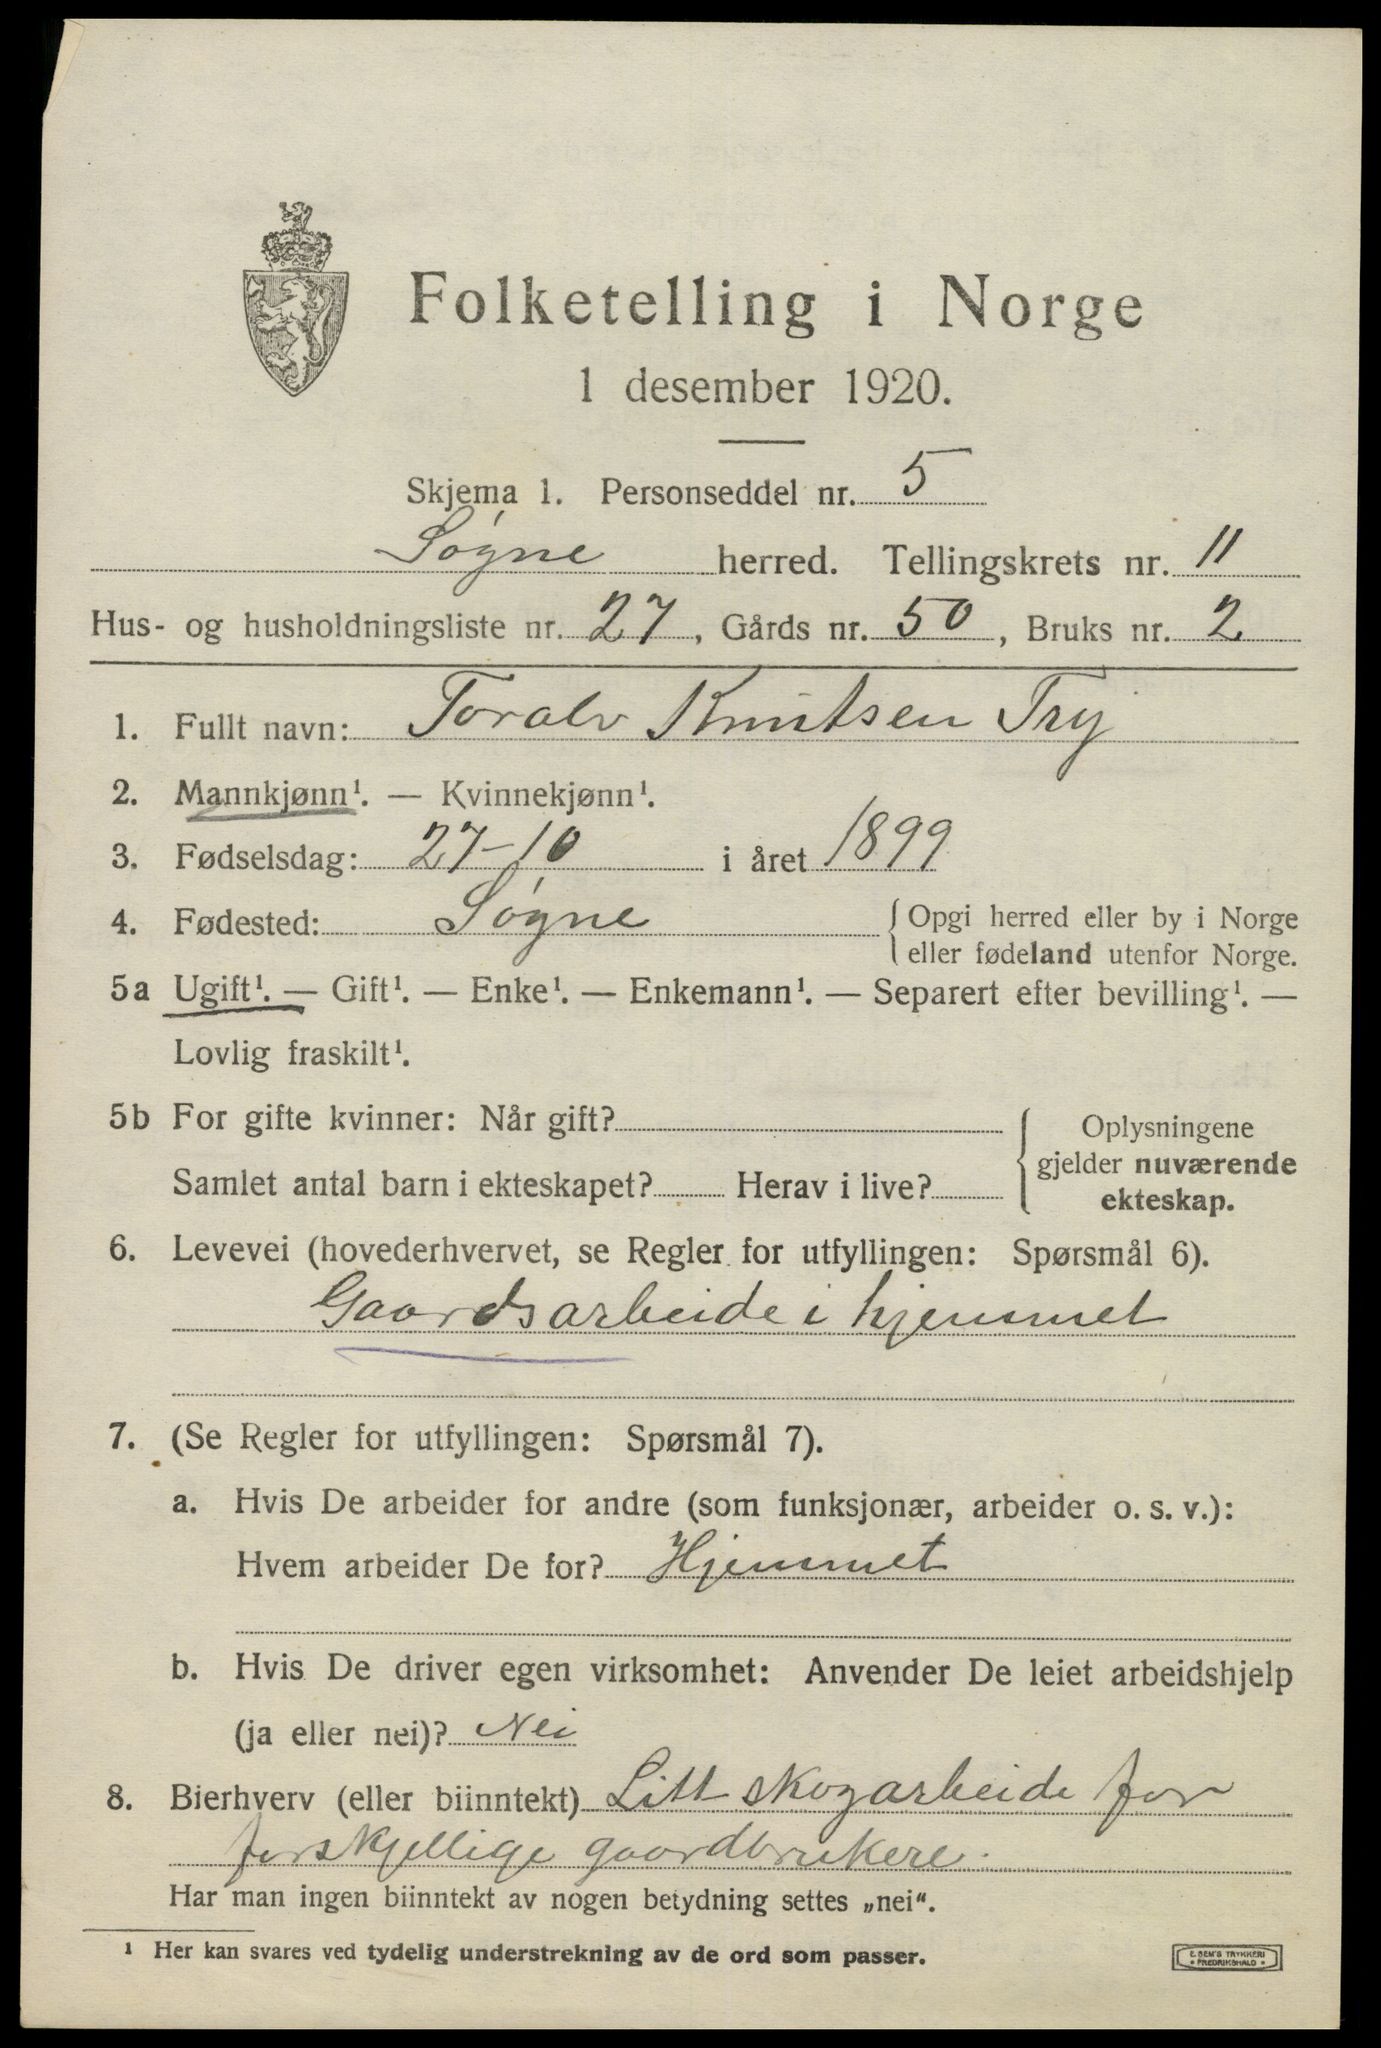 Folketelling i Norge
1 desember 1920.
Skjema 1. Personseddel nr. 5
Søgne herred. Tellingskrets nr. 11
Hus- og husholdningsliste nr. 27, Gårds nr. 50, Bruks nr. 2
1. Fullt navn: Toralv Knutsen Try
2. Mannkjønn¹. — Kvinnekjønn¹.
3. Fødselsdag: 27-10 i året 1899
4. Fødested: Søgne { Opgi herred eller by i Norge
eller fødeland utenfor Norge.
5a Ugift¹. — Gift¹. — Enke¹. — Enkemann¹. — Separert efter bevilling¹. —
Lovlig fraskilt¹.
5b For gifte kvinner: Når gift?
Samlet antal barn i ekteskapet? Herav i live?
Oplysningene
gjelder nuværende
ekteskap.
6. Levevei (hovederhvervet, se Regler for utfyllingen: Spørsmål 6).
Gaardsarbeide i hjemmet
7. (Se Regler for utfyllingen: Spørsmål 7).
a. Hvis De arbeider for andre (som funksjonær, arbeider o. s. v.):
Hvem arbeider De for? Hjemmet
b. Hvis De driver egen virksomhet: Anvender De leiet arbeidshjelp
(ja eller nei)? Nei
8. Bierhverv (eller biinntekt) Litt skogarbeide for
forskjellige gaardbrukere.
Har man ingen biinntekt av nogen betydning settes „nei“.
¹ Her kan svares ved tydelig understrekning av de ord som passer.
E. SEM'S TRYKKERI
• FREDRIKSHALD •